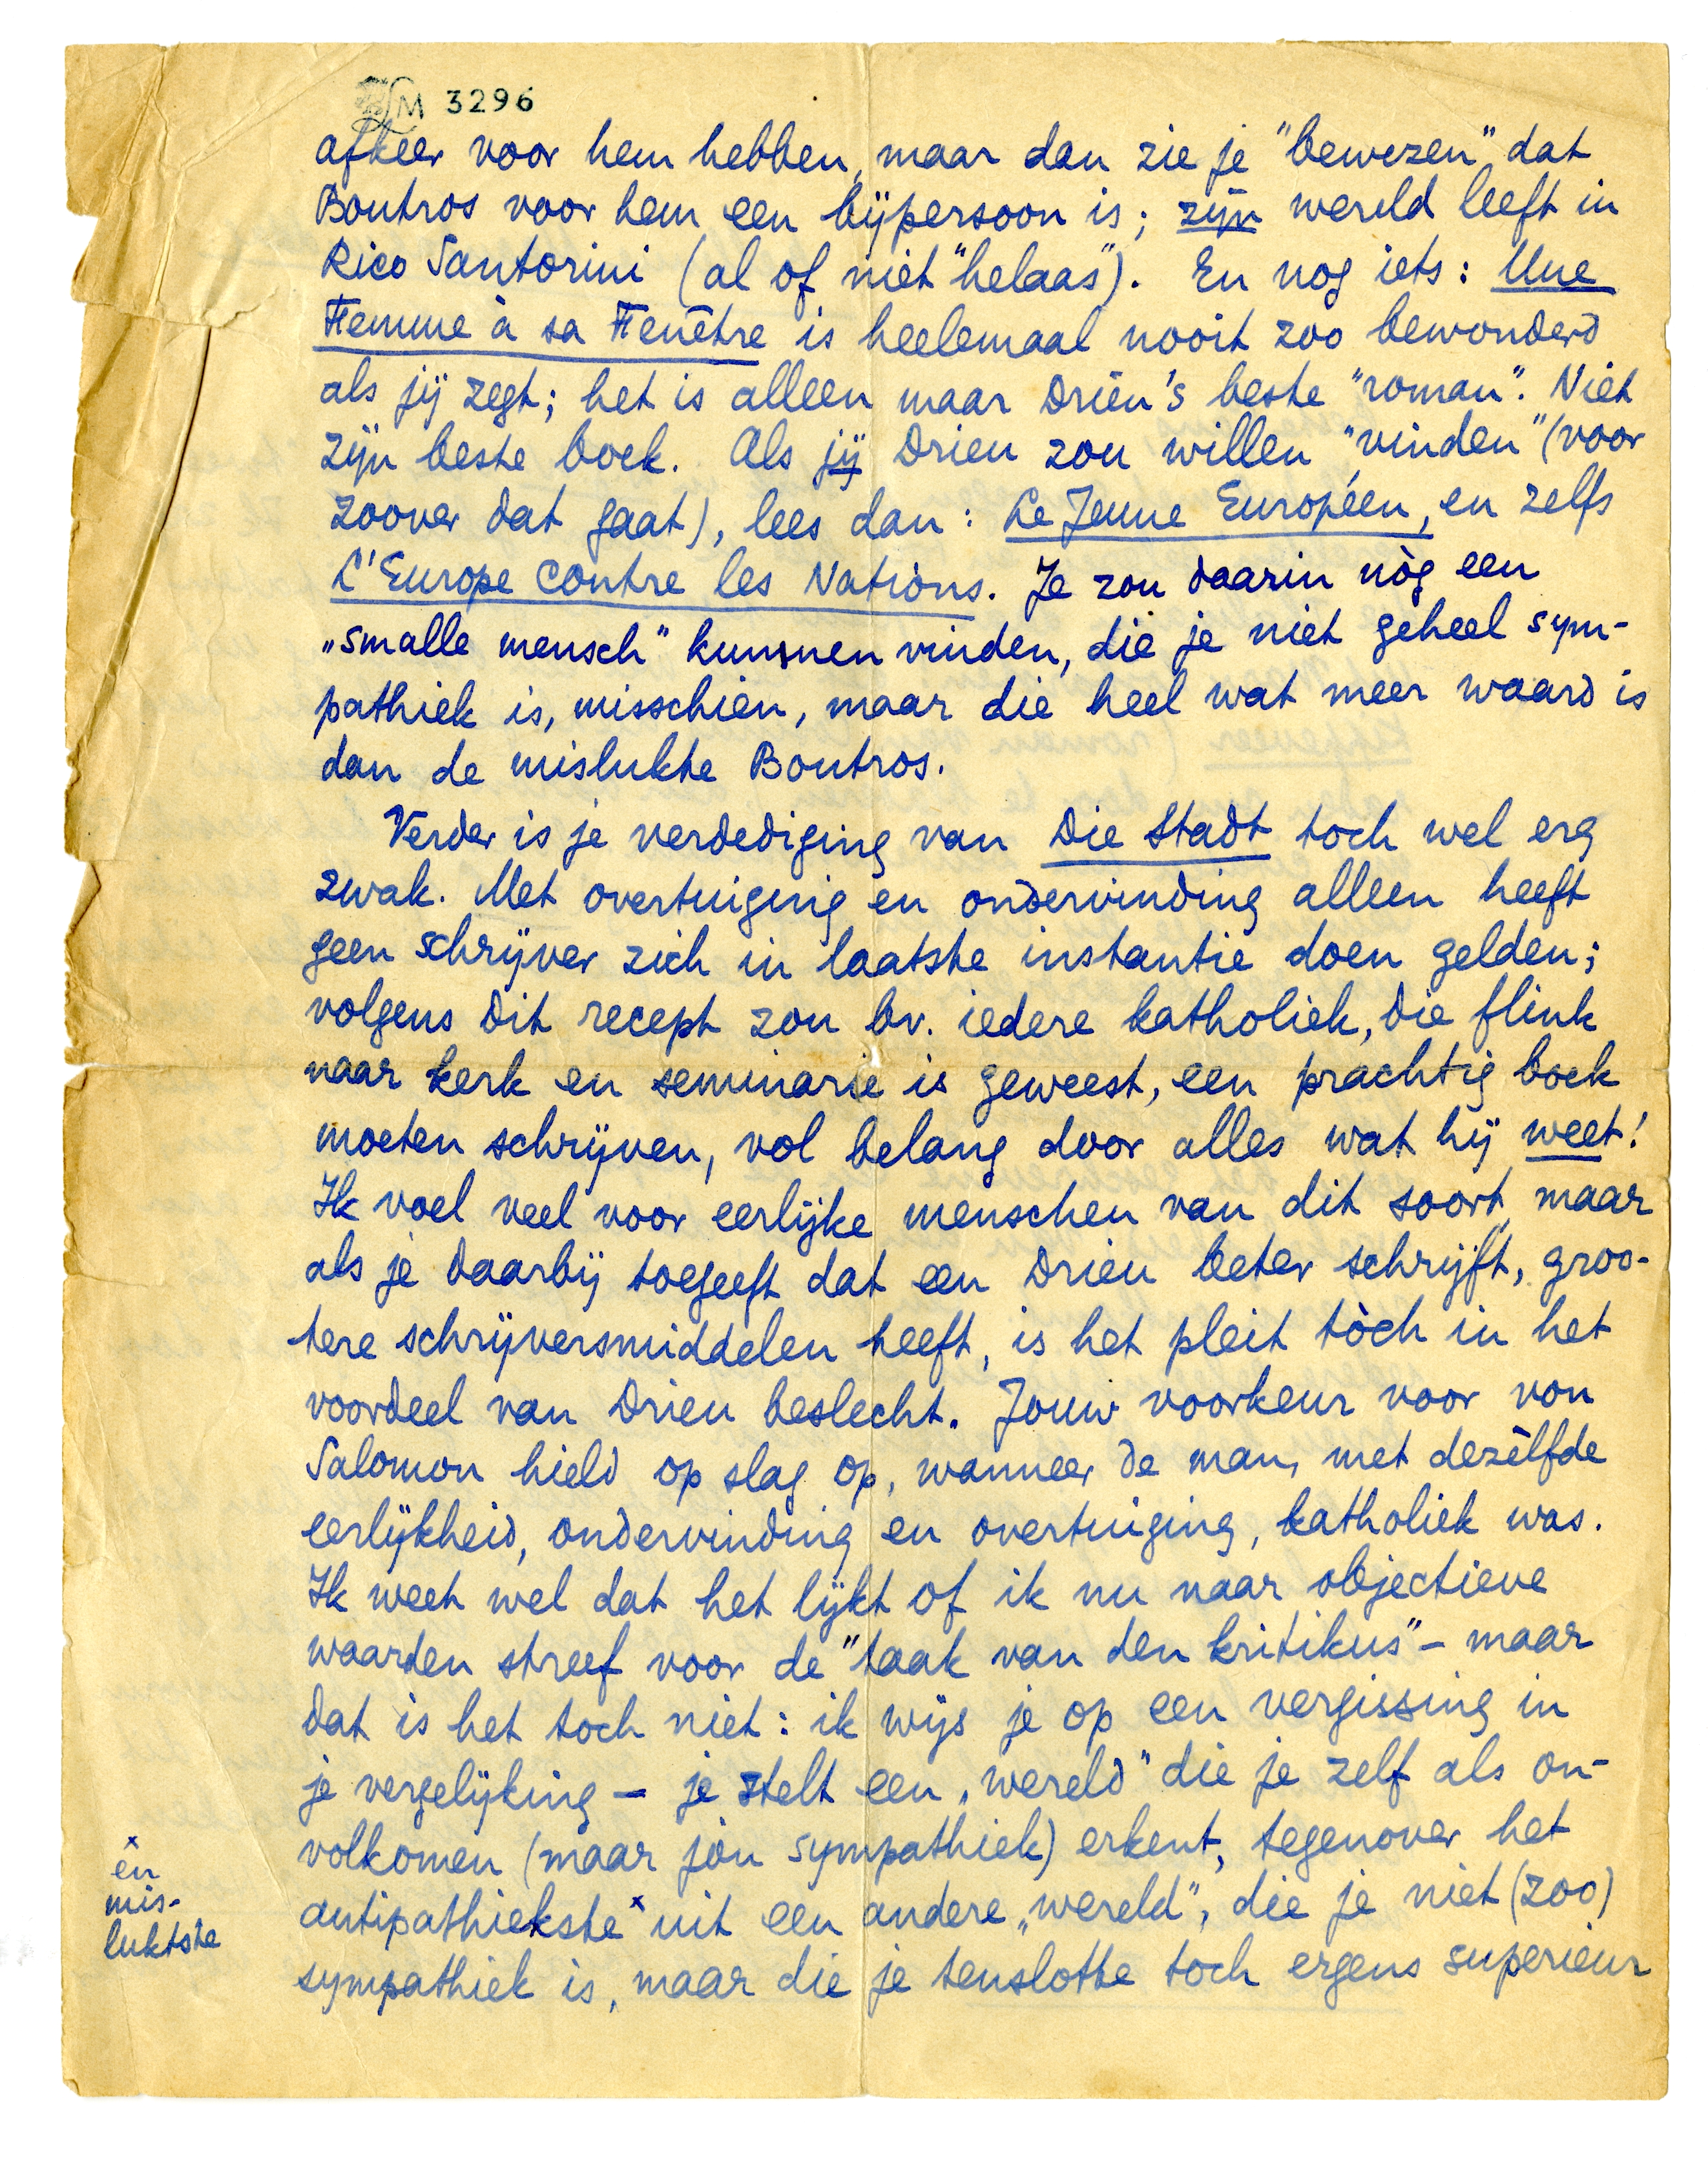 LM 3296
afkeer voor hem hebben, maar dan zie je "bewezen" dat
Boutros voor hem een bijpersoon is; zijn wereld leeft in
Rico Santorini (al of niet "helaas"). En nog iets: Une
Femme à sa Fenêtre is heelemaal nooit zoo bewonderd
als jij zegt; het is alleen maar Drieu's beste "roman". Niet
zijn beste boek. Als jij Drieu zou willen "vinden" (voor
zoover dat gaat), lees dan: Le Jeune Européen, en zelfs
L'Europe contre les Nations. Je zou daarin nòg een
„smalle mensch" kunnen vinden, die je niet geheel sym-
pathiek is, misschien, maar die heel wat meer waard is
dan de mislukte Boutros.
Verder is je verdediging van Die Stadt toch wel erg
zwak. Met overtuiging en ondervinding alleen heeft
geen schrijver zich in laatste instantie doen gelden;
volgens dit recept zou bv. iedere katholiek, die flink
naar kerk en seminarie is geweest, een prachtig boek
moeten schrijven, vol belang door alles wat hij weet!
Ik voel veel voor eerlijke menschen van dit soort, maar
als je daarbij toegeeft dat een Drieu beter schrijft, groo-
tere schrijversmiddelen heeft, is het pleit tòch in het
voordeel van Drieu beslecht. Jouw voorkeur voor von
Salomon hield op slag op, wanneer de man, met dezèlfde
eerlijkheid, ondervinding en overtuiging, katholiek was.
Ik weet wel dat het lijkt of ik nu naar objectieve
waarden streef voor de "taak van den kritikus" – maar
dat is het toch niet: ik wijs je op een vergissing in
je vergelijking – je stelt een „wereld" die je zelf als on-
volkomen (maar jòu sympathiek) erkent, tegenover het
antipathiekste x uit een andere „wereld", die je niet (zoo)
sympathiek is, maar die je tenslotte toch ergens superieur
x
èn
mis-
luktste